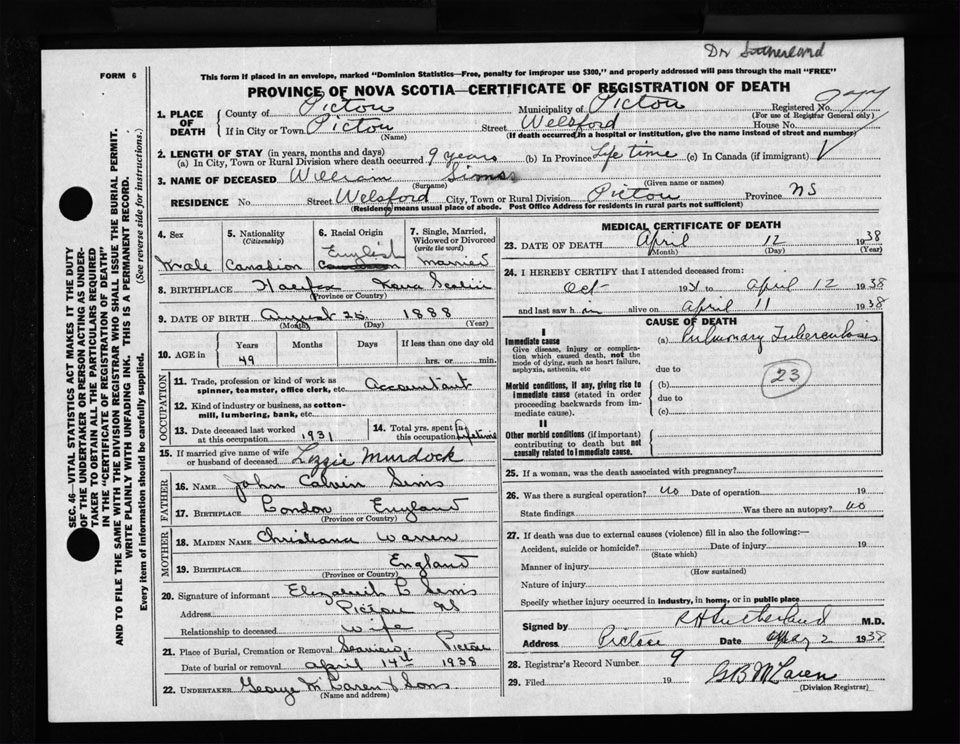 Dr Sutherland
FORM 6
This form if placed in an envelope, marked "Dominion Statistics—Free, penalty for improper use $300," and properly addressed will pass through the mail "FREE"
PROVINCE OF NOVA SCOTIA—CERTIFICATE OF REGISTRATION OF DEATH
1. PLACE OF DEATH
County of Pictou Municipality of Pictou Registered No.
(For use of Registrar General only)
If in City or Town Pictou Street Welsford House No.
(Name) (If death occurred in a hospital or institution, give the name instead of street and number)
2. LENGTH OF STAY (in years, months and days)
(a) In City, Town or Rural Division where death occurred 9 years (b) In Province Life time (c) In Canada (if immigrant)
3. NAME OF DECEASED William Sims
(Surname) (Given name or names)
RESIDENCE No. Street Welsford City, Town or Rural Division Pictou Province NS
(Residency means usual place of abode. Post Office Address for residents in rural parts not sufficient)
4. Sex
Male
5. Nationality (Citizenship)
Canadian
6. Racial Origin
English
7. Single, Married, Widowed or Divorced (write the word)
married
8. BIRTHPLACE Halifax Nova Scotia
(Province or Country)
9. DATE OF BIRTH August 25 1888
(Month) (Day) (Year)
10. AGE in Years Months Days If less than one day old
49 hrs. or min.
OCCUPATION
11. Trade, profession or kind of work as spinner, teamster, office clerk, etc. Accountant
12. Kind of industry or business, as cotton-mill, lumbering, bank, etc.
13. Date deceased last worked at this occupation 1931
14. Total yrs. spent in this occupation Lifetime
15. If married give name of wife or husband of deceased Lizzie Murdock
FATHER
16. NAME John Calvin Sims
17. BIRTHPLACE London England
(Province or Country)
MOTHER
18. MAIDEN NAME Christiana Warren
19. BIRTHPLACE England
(Province or Country)
20. Signature of informant Elizabeth L Sims
Address Pictou NS
Relationship to deceased wife
21. Place of Burial, Cremation or Removal Seaview, Pictou
Date of burial or removal April 14th 1938
22. UNDERTAKER George McLaren & Sons
(Name and address)
MEDICAL CERTIFICATE OF DEATH
23. DATE OF DEATH April 12 1938
(Month) (Day) (Year)
24. I HEREBY CERTIFY that I attended deceased from:
Oct 1931 to April 12 1938
and last saw him alive on April 11 1938
CAUSE OF DEATH
I
Immediate cause
Give disease, injury or complication which caused death, not the mode of dying, such as heart failure, asphyxia, asthenia, etc
(a) Pulmonary Tuberculosis
due to
23
Morbid conditions, if any, giving rise to immediate cause (stated in order proceeding backwards from immediate cause).
(b)
due to
(c)
II
Other morbid conditions (if important) contributing to death but not causally related to immediate cause.
25. If a woman, was the death associated with pregnancy?
26. Was there a surgical operation? no Date of operation 19
State findings Was there an autopsy? no
27. If death was due to external causes (violence) fill in also the following:—
Accident, suicide or homicide? Date of injury 19
(State which)
Manner of injury
(How sustained)
Nature of injury
Specify whether injury occurred in industry, in home, or in public place
Signed by R H Sutherland M.D.
Address Pictou Date May 2 1938
28. Registrar's Record Number 9
29. Filed 19 G B McLaren
(Division Registrar)
SEC. 46—VITAL STATISTICS ACT MAKES IT THE DUTY
OF THE UNDERTAKER OR PERSON ACTING AS UNDER-
TAKER TO OBTAIN ALL THE PARTICULARS REQUIRED
IN THE "CERTIFICATE OF REGISTRATION OF DEATH"
AND TO FILE THE SAME WITH THE DIVISION REGISTRAR WHO SHALL ISSUE THE BURIAL PERMIT.
WRITE PLAINLY WITH UNFADING INK. THIS IS A PERMANENT RECORD.
Every item of information should be carefully supplied. (See reverse side for instructions.)